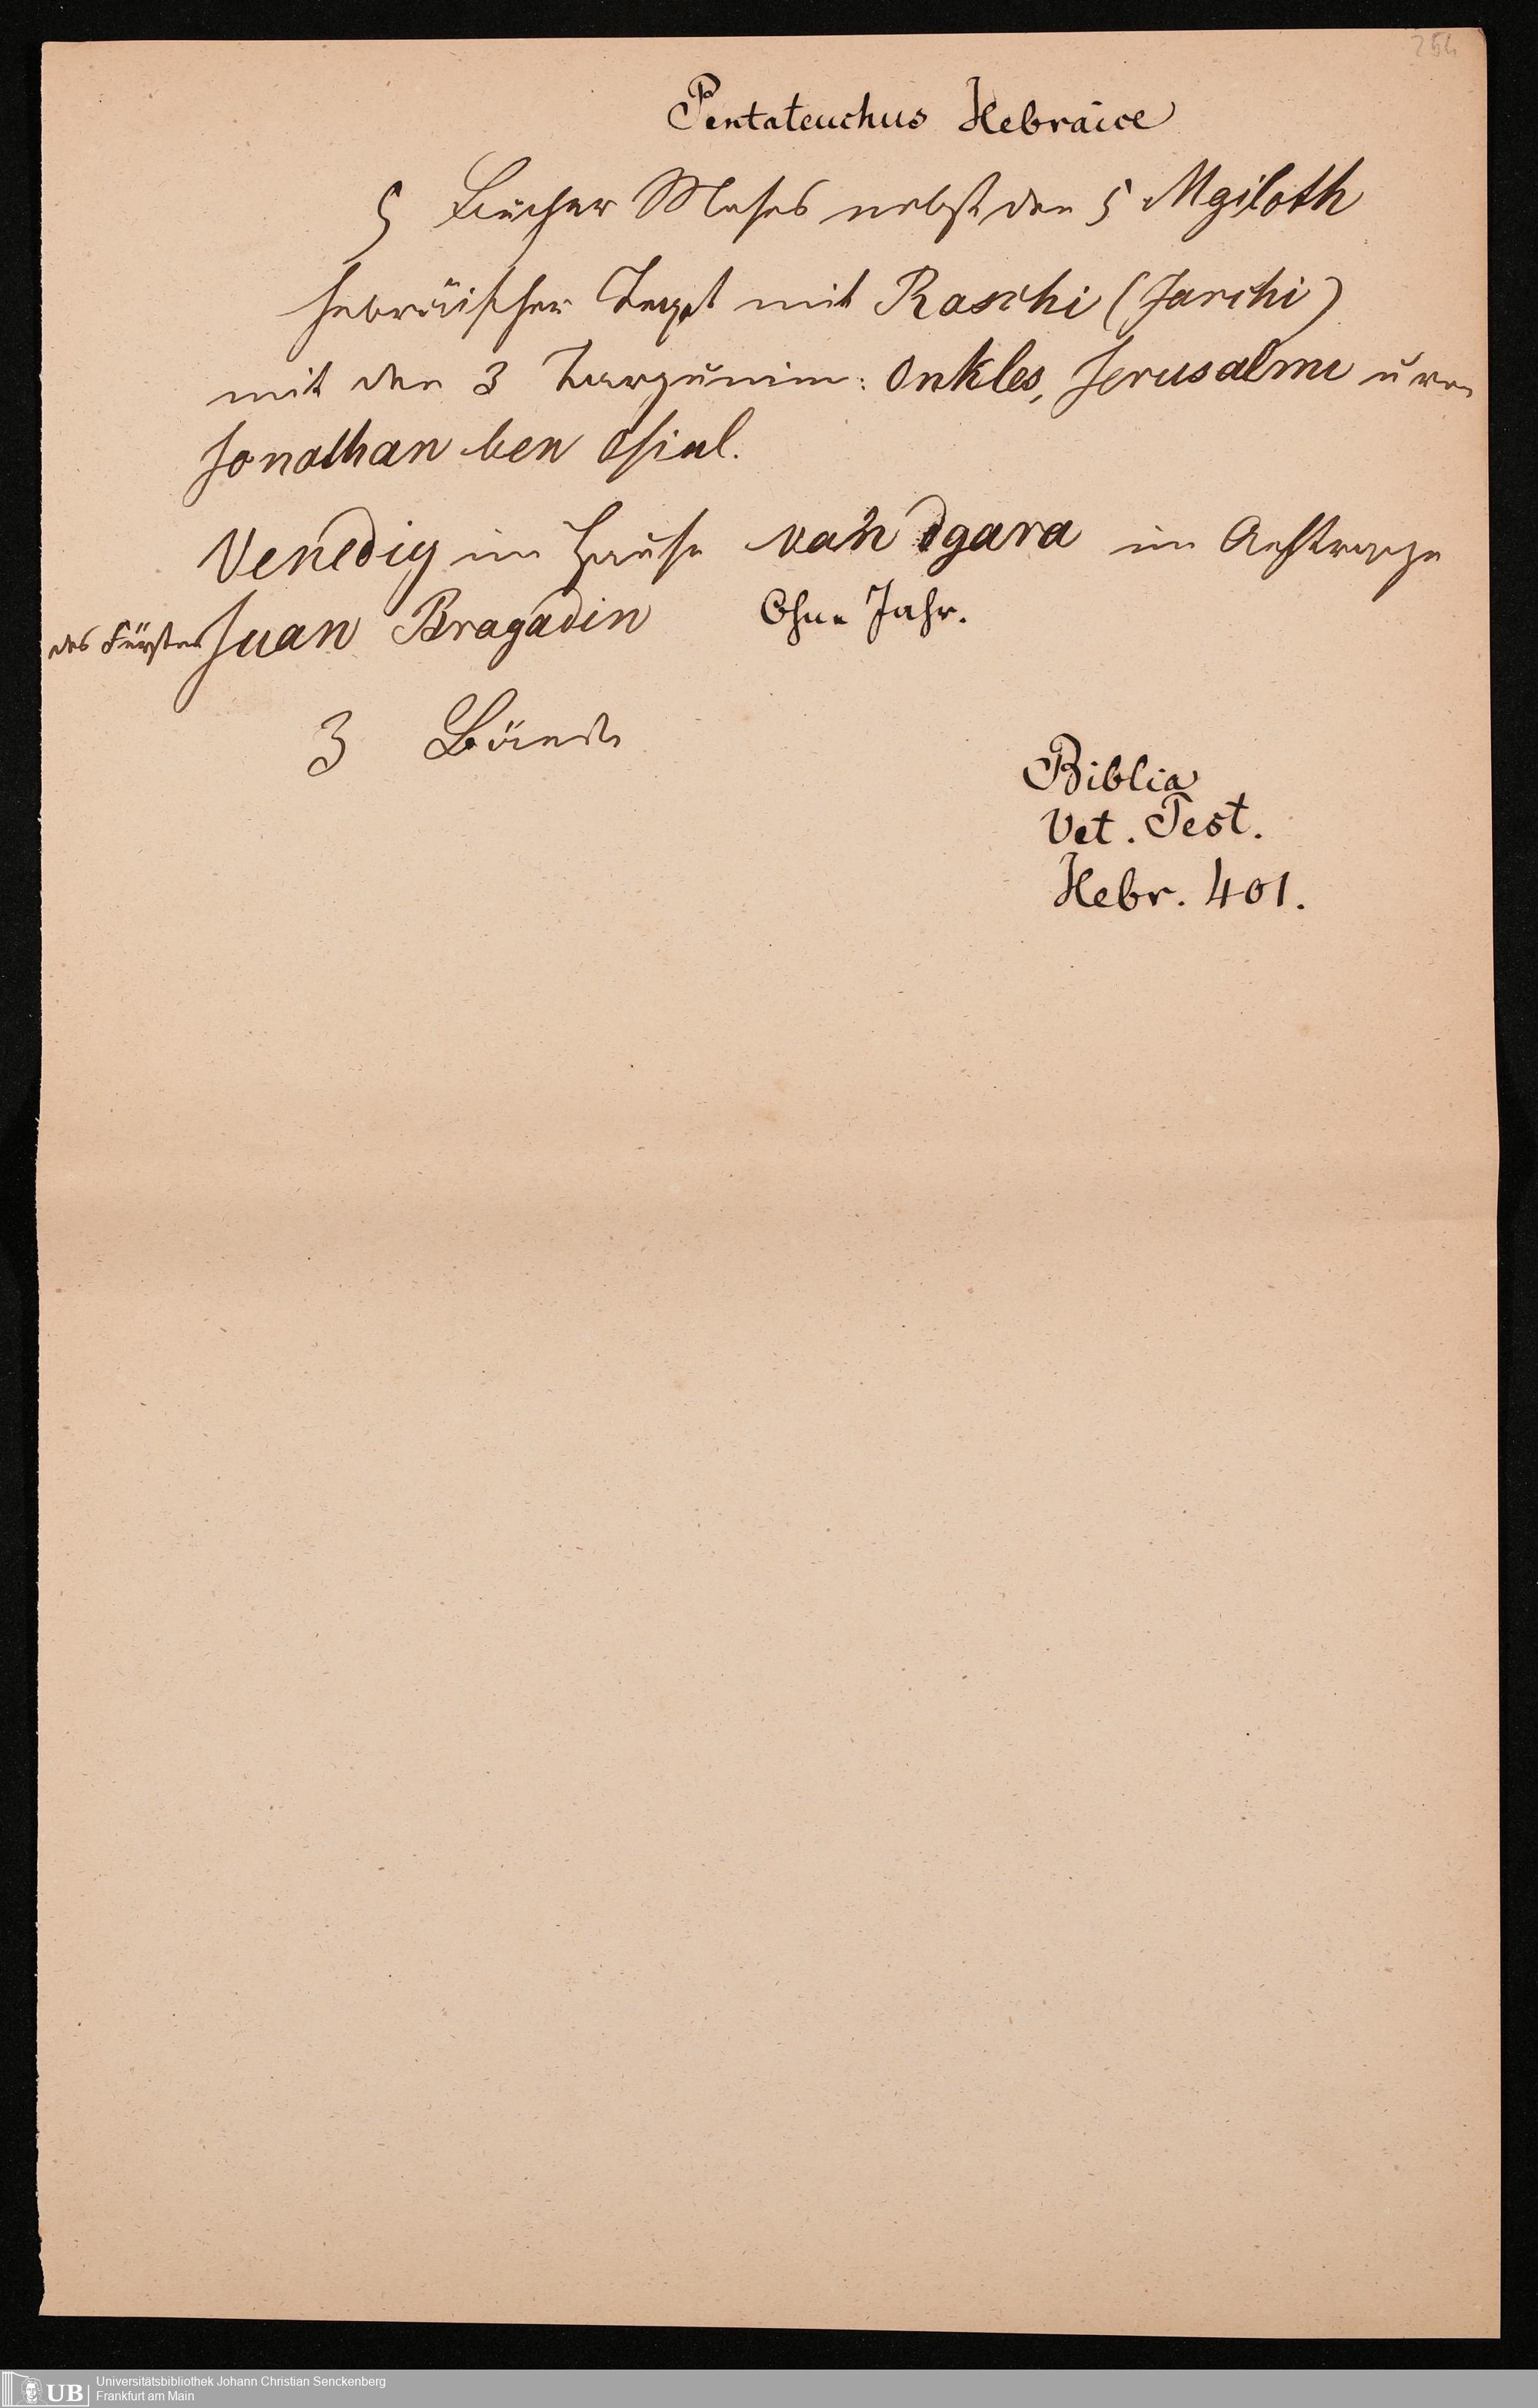 254
Pentateuchus Hebraice
5 Bücher Moses nebst den 5 Mgiloth
hebräischer Text mit Raschi (Jarchi)
mit den 3 Targumim: Onkles, Jerusalmi u von
Jonathan ben Usiel.
Venedig im Hause van dgara im Auftrage
des Fürsten Juan Bragadin Ohne Jahr.
3 Bände
Biblia
Vet. Test.
Hebr. 401.
UB Universitätsbibliothek Johann Christian Senckenberg
Frankfurt am Main